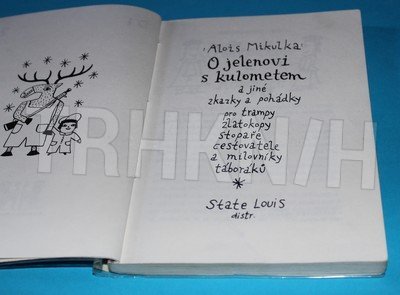 Alois Mikulka
O jelenovi
s kulometem
a jiné
zkazky a pohádky
pro trampy
zlatokopy
stopaře
cestovatele
a milovníky
táboráků
*
State Louis
distr.
TRHKNIH